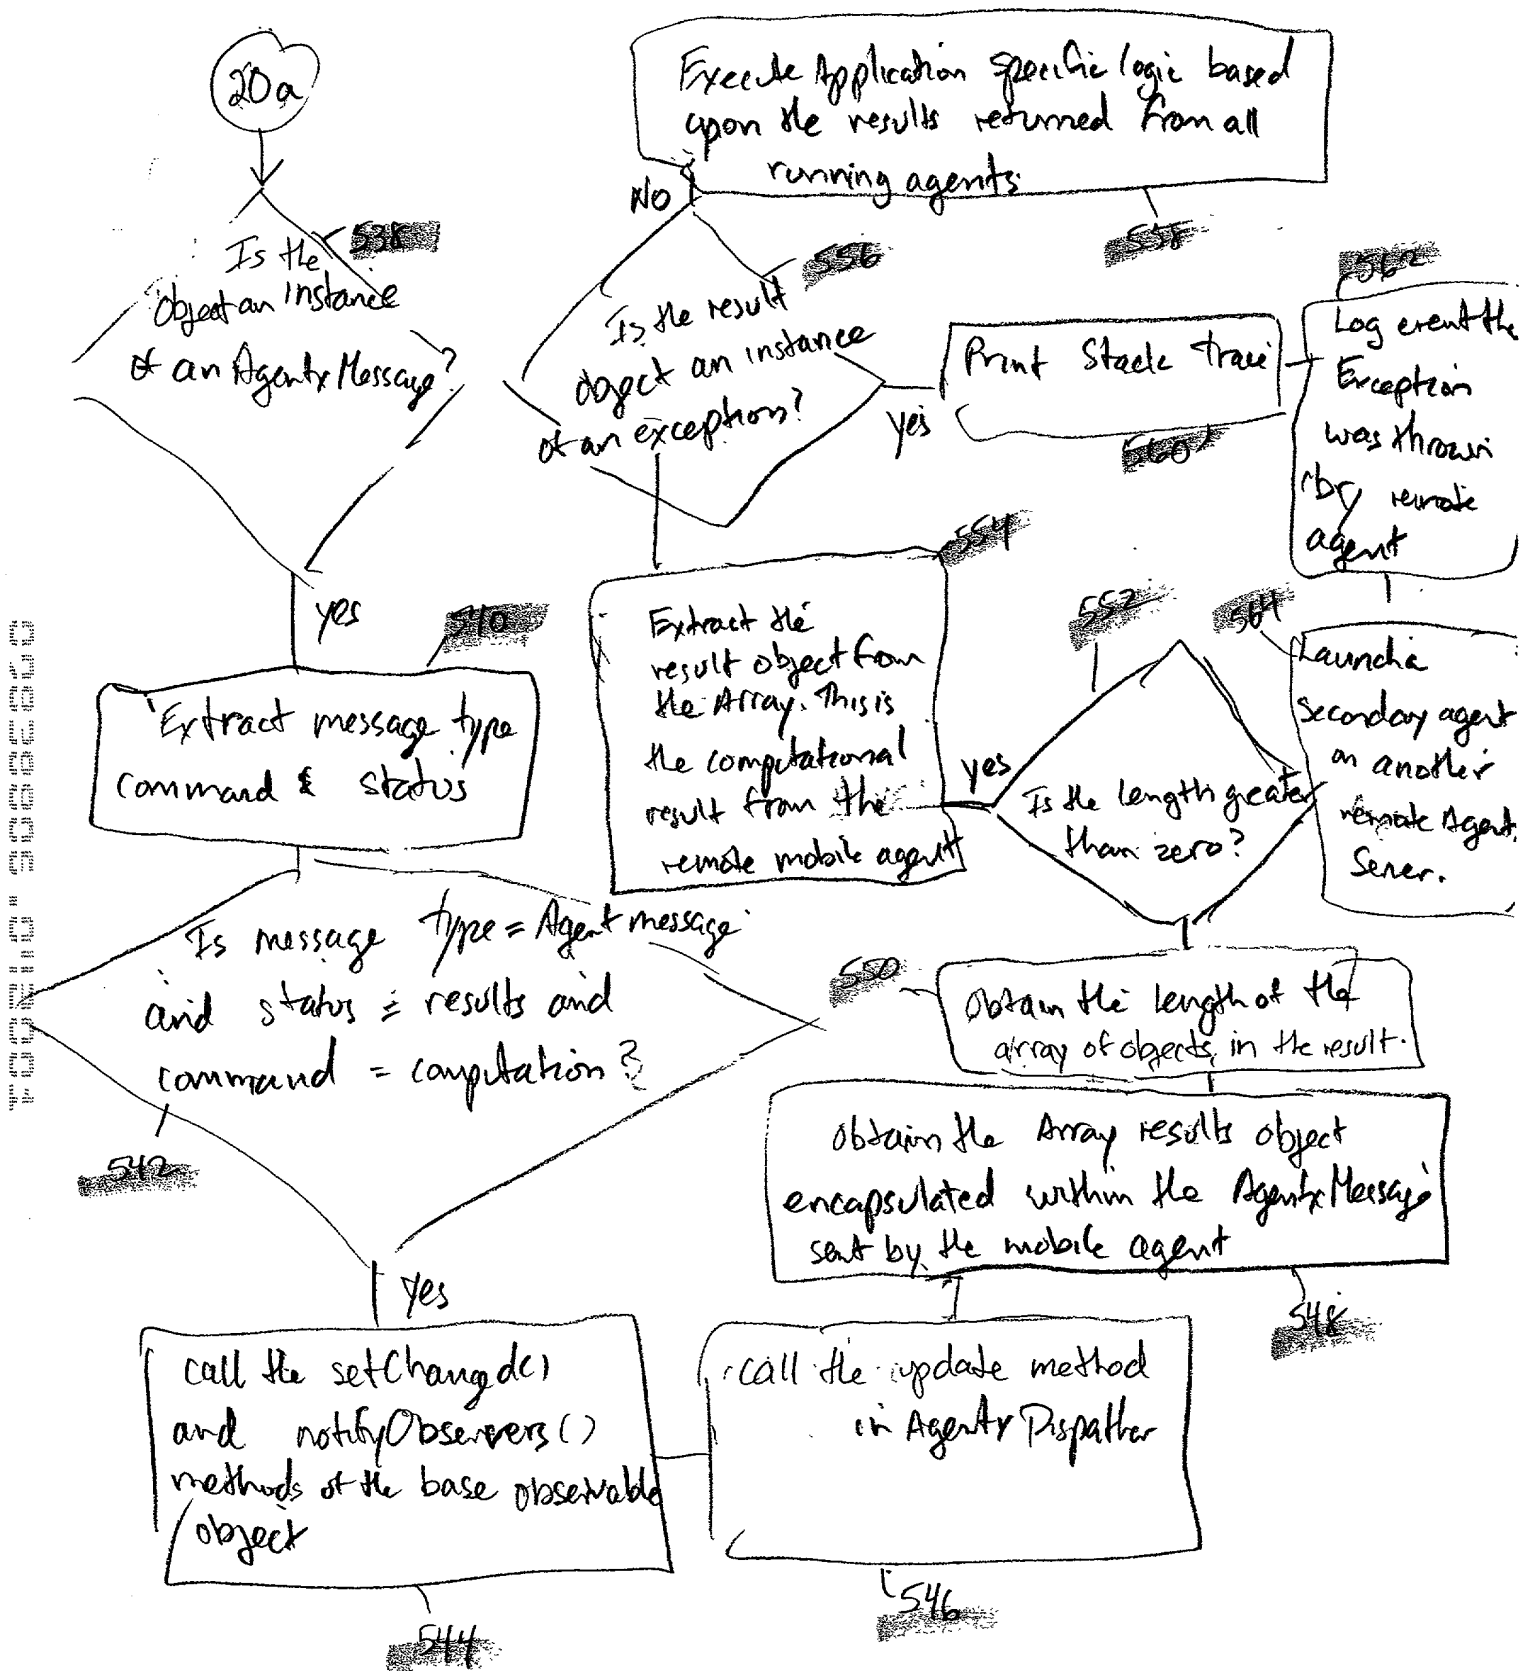 20a
538
Is the
Object an instance
of an AgentxMessage?
yes
540
Extract message type
command & status
Is message type = Agent message
and status = results and
command = computation?
542
yes
call the setChanged()
and notifyObservers()
methods of the base observable
object
544
call the update method
in AgentxDispather
546
obtain the Array results object
encapsulated within the AgentxMessage
sent by the mobile agent
548
550
obtain the length of the
array of objects in the result.
552
Is the length greater
than zero?
yes
554
Extract the
result object from
the Array. This is
the computational
result from the
remote mobile agent
556
Is the result
object an instance
of an exception?
No
Execute Application specific logic based
upon the results returned from all
running agents.
558
yes
Print Stack trace
560
562
Log event the
Exception
was thrown
by remote
agent
564
Launch a
Secondary agent
on another
remote Agent
Server.